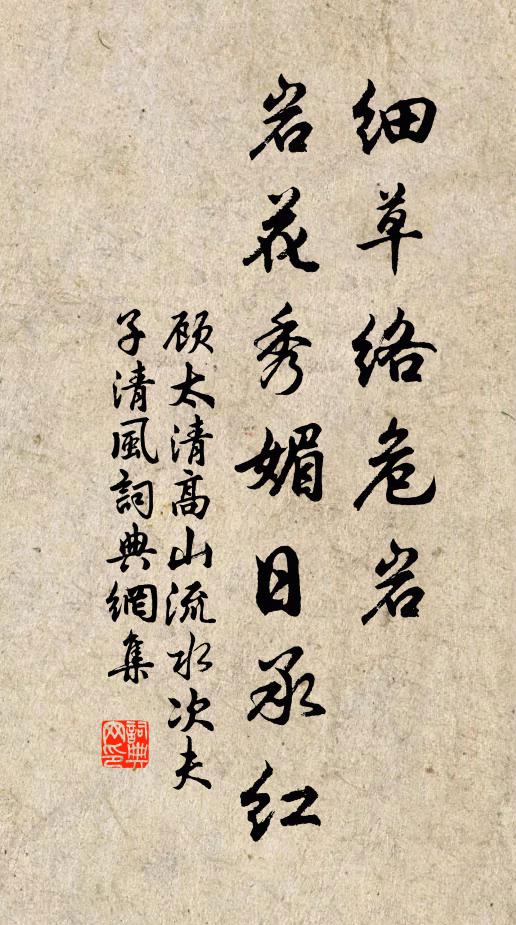 细草络危岩
岩花秀媚日承红
顾太清高山流水次夫
子清風詞典網集
詞典